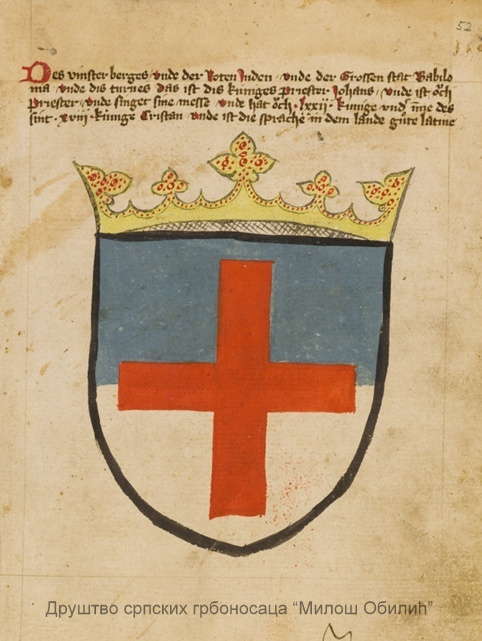 52
Des vinster berges / vnde der Roten Juden / vnde der Grossen stat Babilo
nia / vnde dis turnes das ist dis kuniges priester Johans / vnde ist och
priester / vnde singet sine messe / vnde hat och · lxxii · kunige vnd
sint · xviii · kunige Cristan vnde ist die sprache in dem lande gute latine
Друштво српских грбоносаца “Милош Обилић”